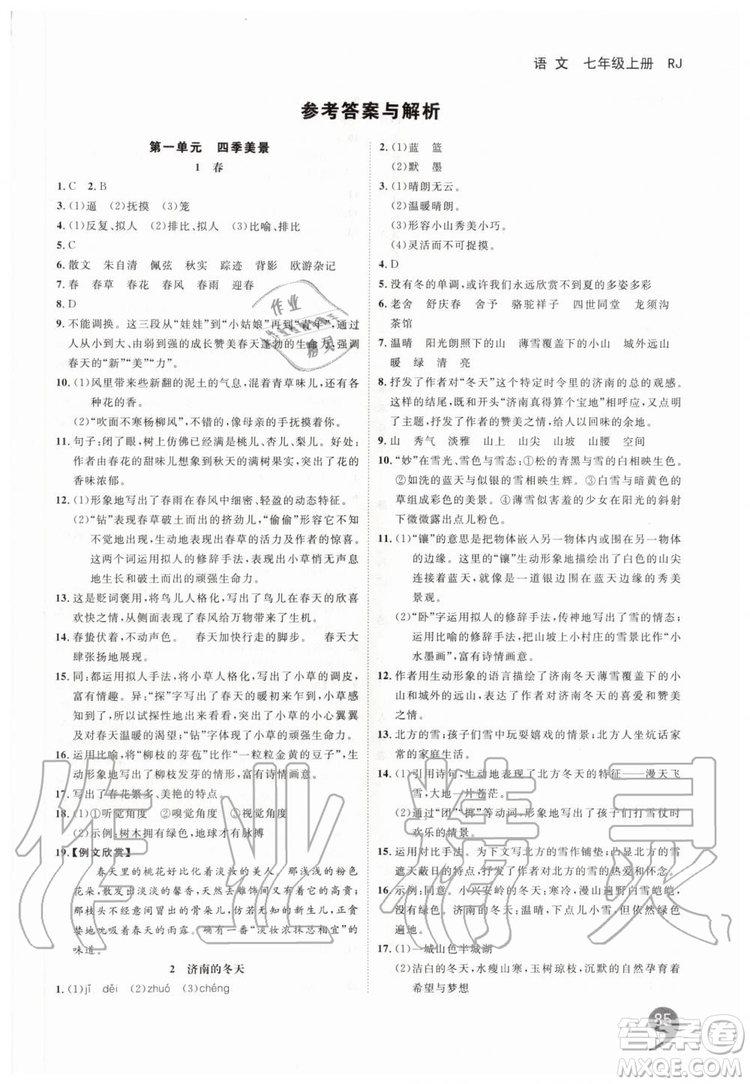 语文 七年级上册 RJ
参考答案与解析
第一单元 四季美景
1 春
1. C 2. B
3. (1)逼 (2)抚摸 (3)笼
4. (1)反复、拟人 (2)排比、拟人 (3)比喻、排比
5. C
6. 散文 朱自清 佩弦 秋实 踪迹 背影 欧游杂记
7. 春 春草 春花 春风 春雨 迎春
8. D
9. 不能调换。这三段从“娃娃”到“小姑娘”再到“青年”,通过
人从小到大、由弱到强的成长赞美春天蓬勃的生命力,强调
春天的“新”“美”“力”。
10. (1)风里带来些新翻的泥土的气息,混着青草味儿,还有各
种花的香。
(2)“吹面不寒杨柳风”,不错的,像母亲的手抚摸着你。
11. 句子:闭了眼,树上仿佛已经满是桃儿、杏儿、梨儿。好处:
作者由春花的甜味儿想到秋天的硕果累累,突出了春花的
香味浓郁。
12. (1)形象地写出了春雨在春风中细密、轻盈的动态特征。
(2)“钻”表现春草破土而出的挤劲儿,“偷偷”形象地写出
了不知不觉中,春草已悄然而出的情景和作者的惊喜。
这两个词运用拟人的修辞手法,写出了春草无声无息
地破土而出的顽强生命力。
13. 这是贬词褒用,将鸟儿人格化,写出了鸟儿在春天的欣喜
欢快之情,并借此表现了春风给万物带来的生机。
14. 春蛰伏着,萌动着。 春天加快行进的脚步。 春天大
肆张扬,尽情展现。
15. 同:都运用拟人手法,将小草人格化,写出了小草的调皮,
富有情趣。异:“探”字巧妙地写出了春天的暖意刚刚到
来,小草以试探性的姿势,将头探出来,表现出小草小心翼翼
及对春天温暖的渴望;“钻”字写出了小草的顽强生命力。
16. 运用比喻,将“柳枝的芽苞”比作“一粒粒金黄的豆子”,生
动形象地写出了柳枝发芽的美丽情景,富有诗情画意。
17. 写出了春花繁多、美艳的特点。
18. (1)①听觉角度 ②嗅觉角度 ③视觉角度
(2)示例:树木拥有绿色,地球才有脉搏
19. 【例文欣赏】
春天里的桃花好比化着淡妆的美人。那浅浅的粉色
花朵,散发出淡淡的馨香,天然去雕饰间有了一种高贵;
那枝头还未开放的骨朵儿,仿佛娇羞的小女子,正贪
婪地吮吸着春天的雨露。有一番“淡妆浓抹总相宜”的
味道。
2 济南的冬天
1. (1)jī děi (2)zhuó (3)chéng
2. (1)蓝 篮
(2)默 墨
3. (1)晴朗无云。
(2)温暖晴朗。
(3)形容小山秀美小巧。
(4)灵活而不可捉摸。
4. D
5. 没有冬的单调,或许我们永远欣赏不到夏的多姿多彩
6. 老舍 舒庆春 舍予 骆驼祥子 四世同堂 龙须沟
茶馆
7. 温晴 阳光朗照下的山 薄雪覆盖下的小山 城外远山
暖 绿 清亮
8. 抒发了作者对“冬天”这个特定时令里的济南的总的观感。
既和开头“济南真得算个宝地”相呼应,首尾圆合,又点明
了主题,抒发了作者的赞美之情,给人以回味的余地。
9. 山 秀气 淡雅 山上 山尖 山坡 山腰 空间
10. “妙”在雪光、雪色与雪态:①松的青黑与雪的白色相映生色。
②如洗的蓝天与似银的雪相映生色。③暗黄的草色与白雪
组成彩色的美景。④娇美含羞的少女在阳光的斜射
下微微露出点儿粉色。
11. (1)“镶”的意思是把物体嵌入另一物体内或围在另一物体
的边缘。这里的“镶”生动形象地描绘出了白色的山尖
与蓝天交接,就像蓝天上有一道银边的雪天的秀美
景观。
(2)“卧”字运用拟人的修辞手法,传神地写出了雪的情态;
运用比喻的修辞手法,把山坡上小村庄的雪景比作“小
水墨画”,富有诗情画意。
12. 作者用生动形象的语言描绘了济南冬天薄雪覆盖下的小
山和城外的远山,表达了作者对济南冬天的喜爱和赞美
之情。
13. 北方的雪;孩子们在雪中玩耍嬉戏的情景;一家人围炉烤火
的家常生活。
14. (1)引用诗句,生动地表现了北方冬天的特征——漫天飞
雪,大地一片苍茫。
(2)通过“团”“掷”等动词,形象地写出了孩子们打雪仗时
的情景。
15. 运用对比手法,为下文写北方的雪作铺垫;同时突出北方的雪
给人们带来的乐趣,表达了作者对北方的雪的喜爱。
16. 示例:同意。小兴安岭的冬天:寒冷,漫山遍野白雪皑皑,
积雪很厚。济南的冬天:温晴,下点小雪,但绿色依然
遍地。
17. (1)一城山色半城湖
(2)洁白的冬天,水瘦山寒,玉树琼枝,沉默的自然孕育着
希望与梦想
85
作业精灵
答案卷